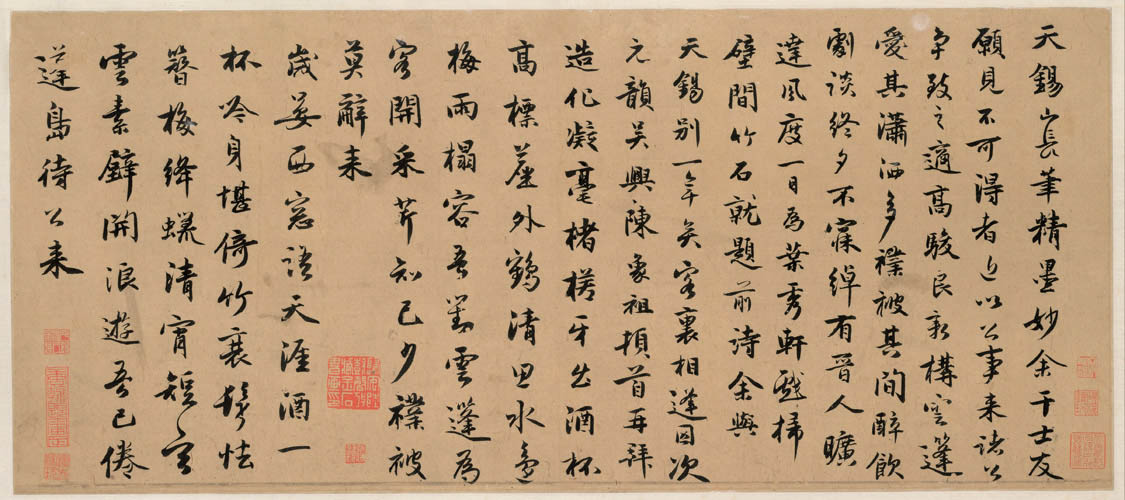 天錫山長筆精墨妙余干士友
願見不可得者近以公事来諸公
爭致之適高駿良新構雲蓬
愛其瀟洒多襆被其間醉飲
劇談終夕不寐綽有晉人曠
達風度一日為葉秀軒戲掃
壁間竹石就題前詩余與
天錫別一年矣客裏相逢因次
元韻吳興陳象祖頓首再拜
造化凝毫楮槎牙出酒杯
高標塵外鶴清思水邊
梅雨榻容吾對雲蓬為
客開采芹知己少襆被
莫辭来
歲晏西窓話天涯酒一
杯吟身堪倚竹衰鬢怯
簪梅絳蠟清宵短玄
雲素壁開浪遊吾已倦
蓬島待公来